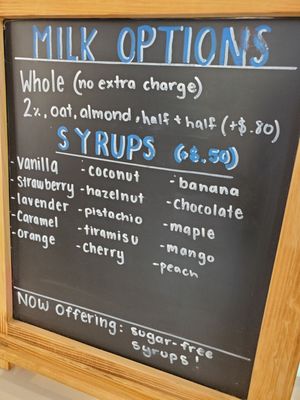 MILK OPTIONS
Whole (no extra charge)
2%, oat, almond, half + half (+$.80)
SYRUPS (+$.50)
- vanilla
- strawberry
- lavender
- caramel
- orange
- coconut
- hazelnut
- pistachio
- tiramisu
- cherry
- banana
- chocolate
- maple
- mango
- peach
NOW Offering: sugar-free
syrups!